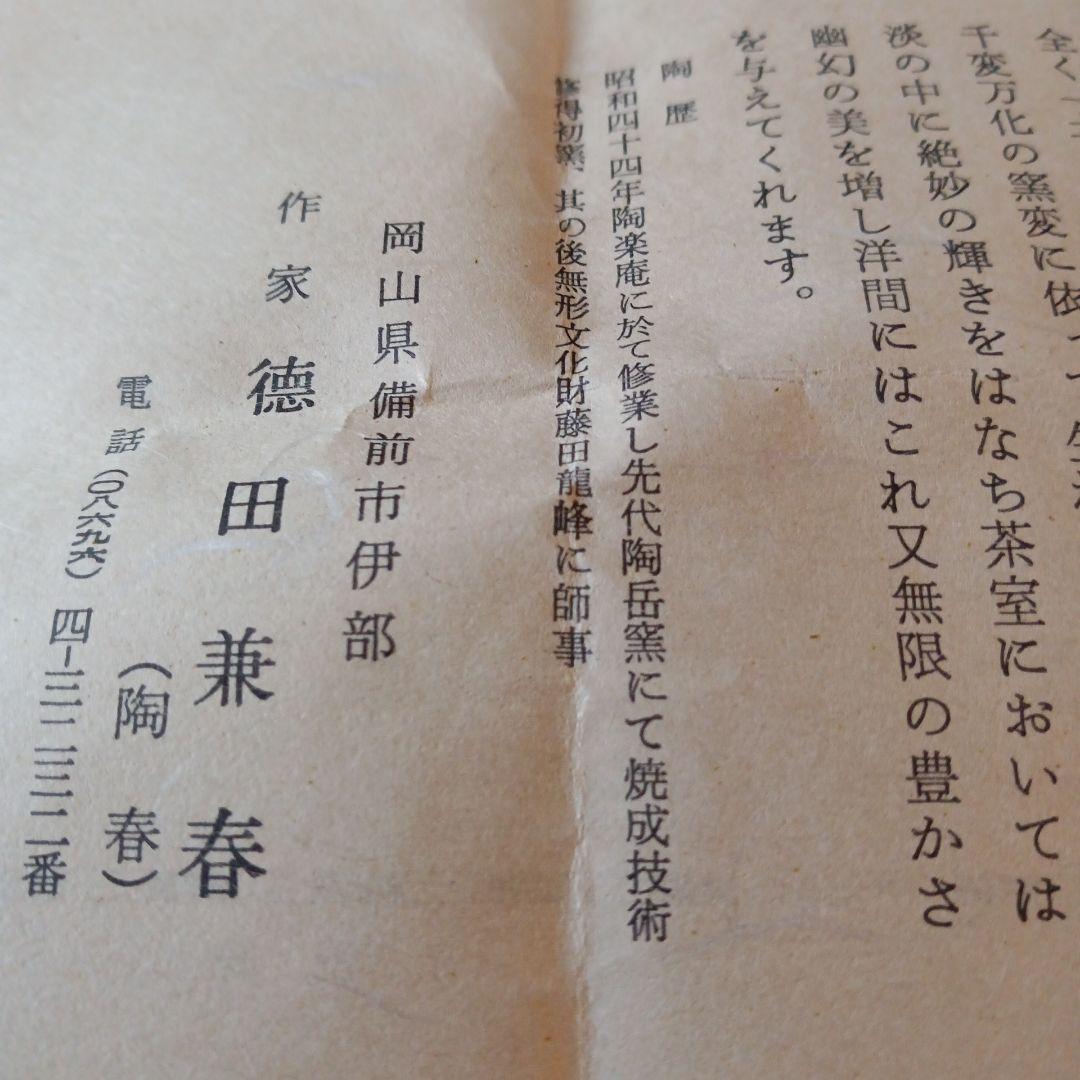 全く
千変万化の窯変に依って生
淡の中に絶妙の輝きをはなち茶室においては
幽幻の美を増し洋間にはこれ又無限の豊かさ
を与えてくれます。
陶歴
昭和四十四年陶楽庵に於て修業し先代陶岳窯にて焼成技術
修得初窯、其の後無形文化財藤田龍峰に師事
岡山県備前市伊部
作家 德田兼春
(陶春)
電話(〇八六九六)四-三二三二番